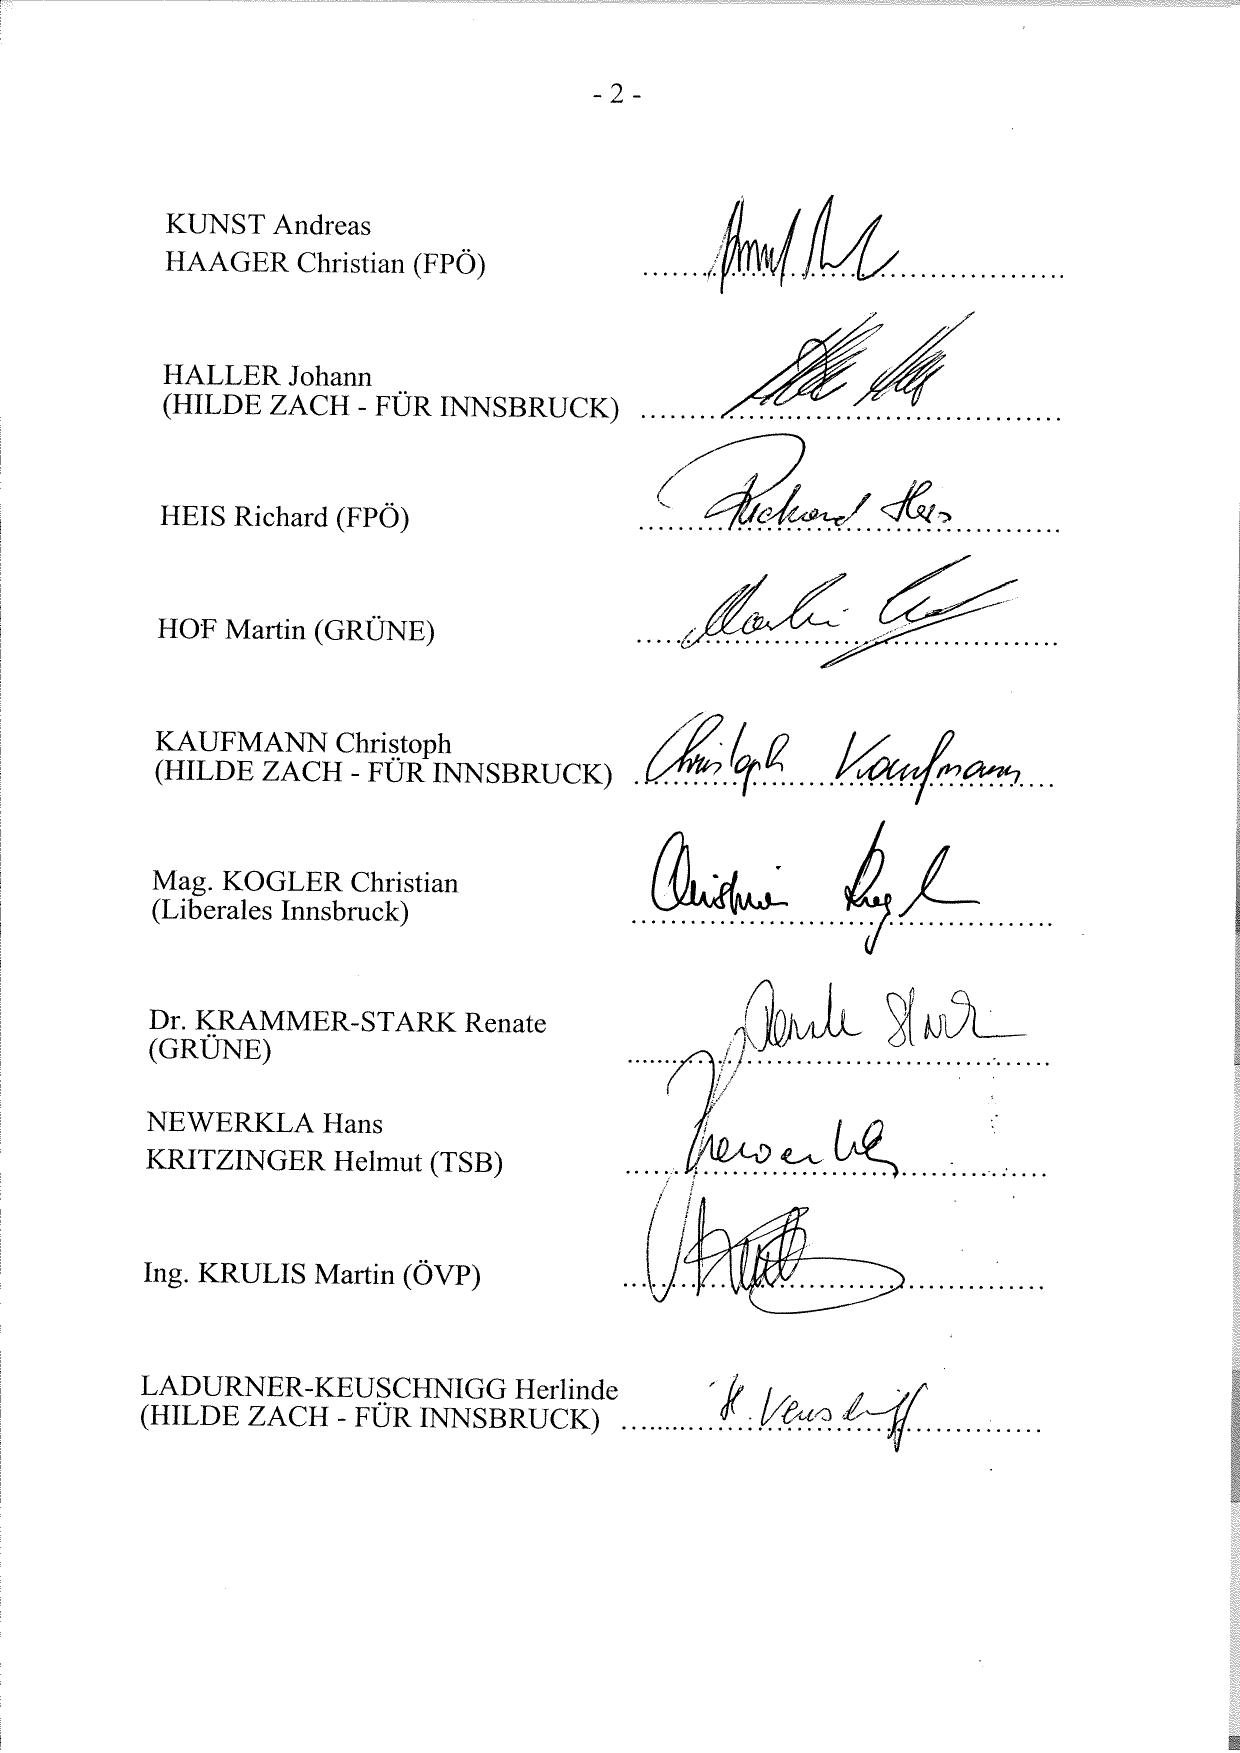 - 2 -
KUNST Andreas
HAAGER Christian (FPÖ) ........................................
HALLER Johann
(HILDE ZACH - FÜR INNSBRUCK) ........................................
HEIS Richard (FPÖ) ........................................
Richard Heis
HOF Martin (GRÜNE) ........................................
Martin
KAUFMANN Christoph
(HILDE ZACH - FÜR INNSBRUCK) ........................................
Christoph Kaufmann
Mag. KOGLER Christian
(Liberales Innsbruck) ........................................
Christian Kogler
Dr. KRAMMER-STARK Renate
(GRÜNE) ........................................
Renate Stark
NEWERKLA Hans
KRITZINGER Helmut (TSB) ........................................
Newerkla
Ing. KRULIS Martin (ÖVP) ........................................
LADURNER-KEUSCHNIGG Herlinde
(HILDE ZACH - FÜR INNSBRUCK) ........................................
H.